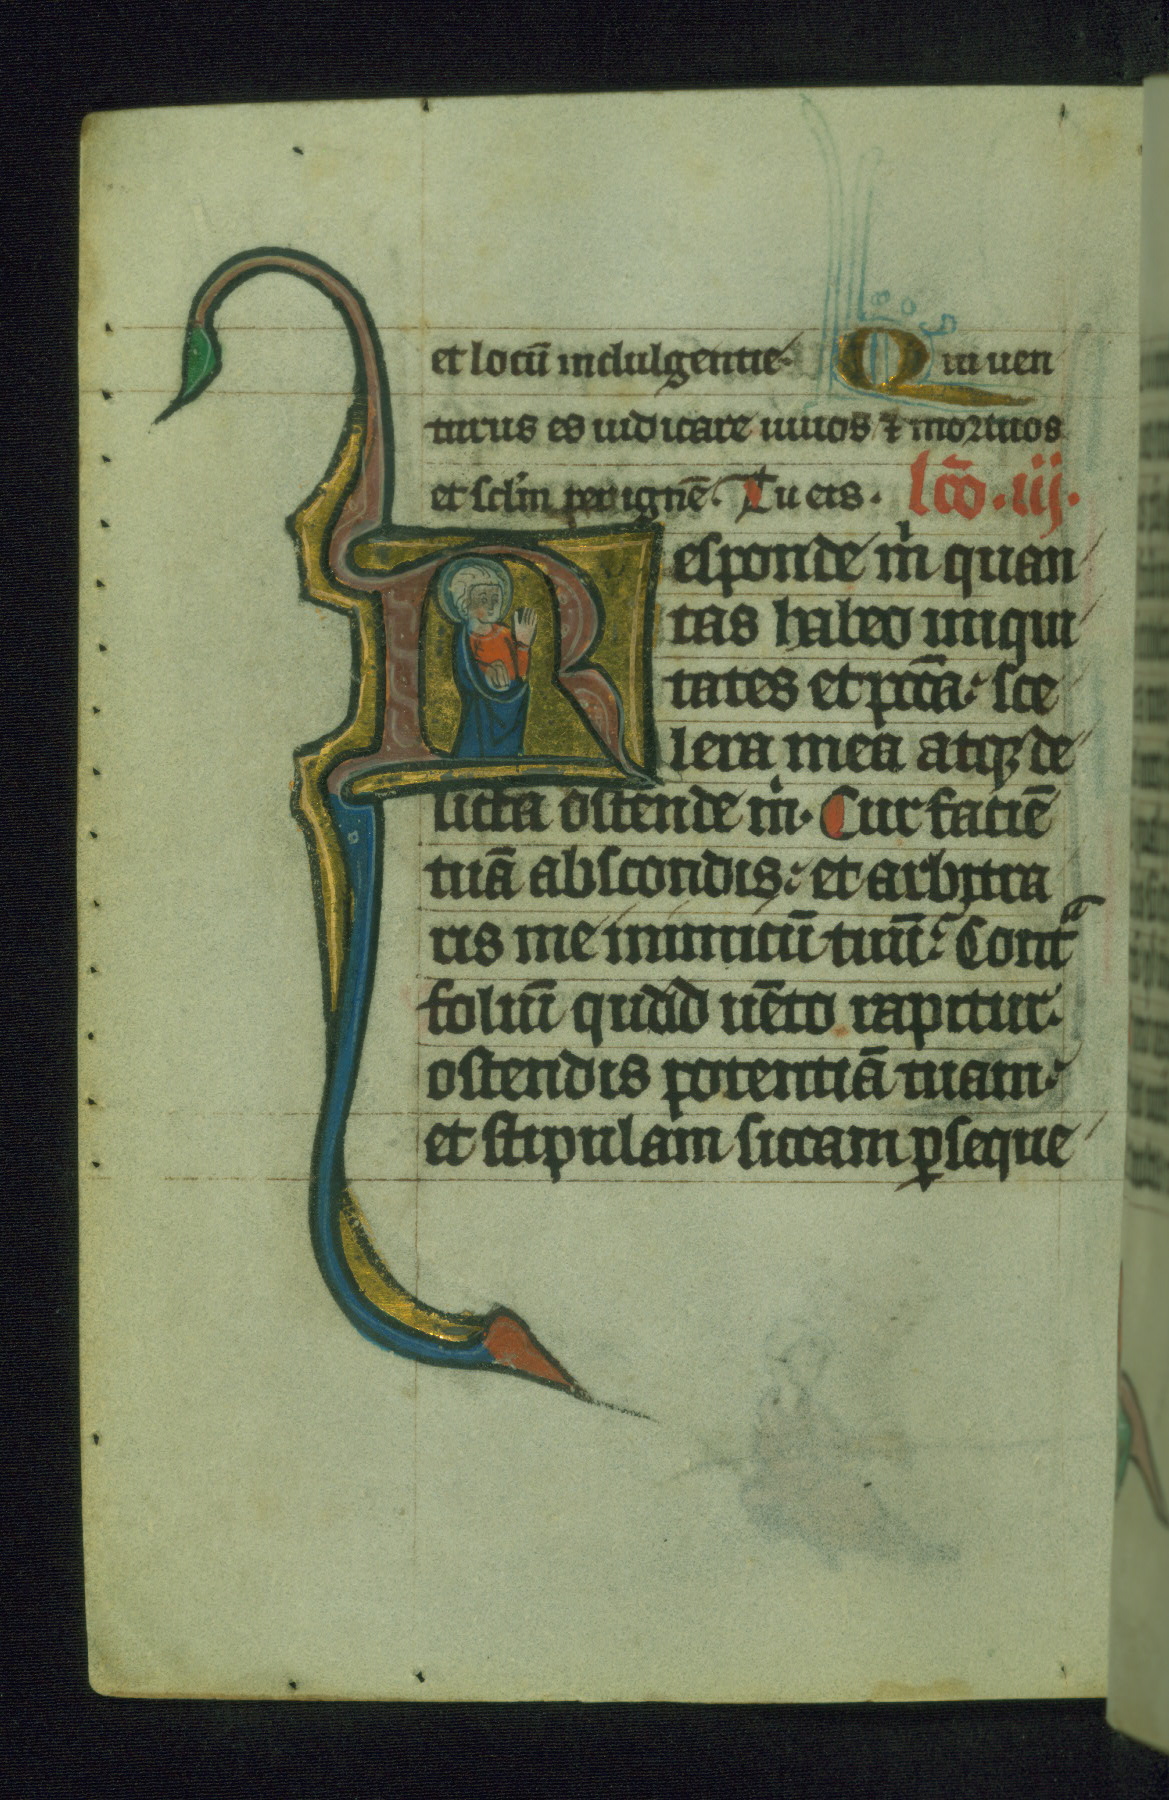 et locū indulgentie. Qui uen
turus es iudicare uiuos ⁊ mortuos
et sclm̄ per ignē. Tu eis. lc̄o .iij.
Responde m̄ quan
tas habeo iniqui
tates et pccā: sce
lera mea atqȝ de
licta ostende m̄. Cur faciē
tuā abscondis: et arbitra
ris me inimicū tuū: Contᵃ
foliū quod uēto rapitur.
ostendis potentiā tuam:
et stipulam siccam ꝑseque